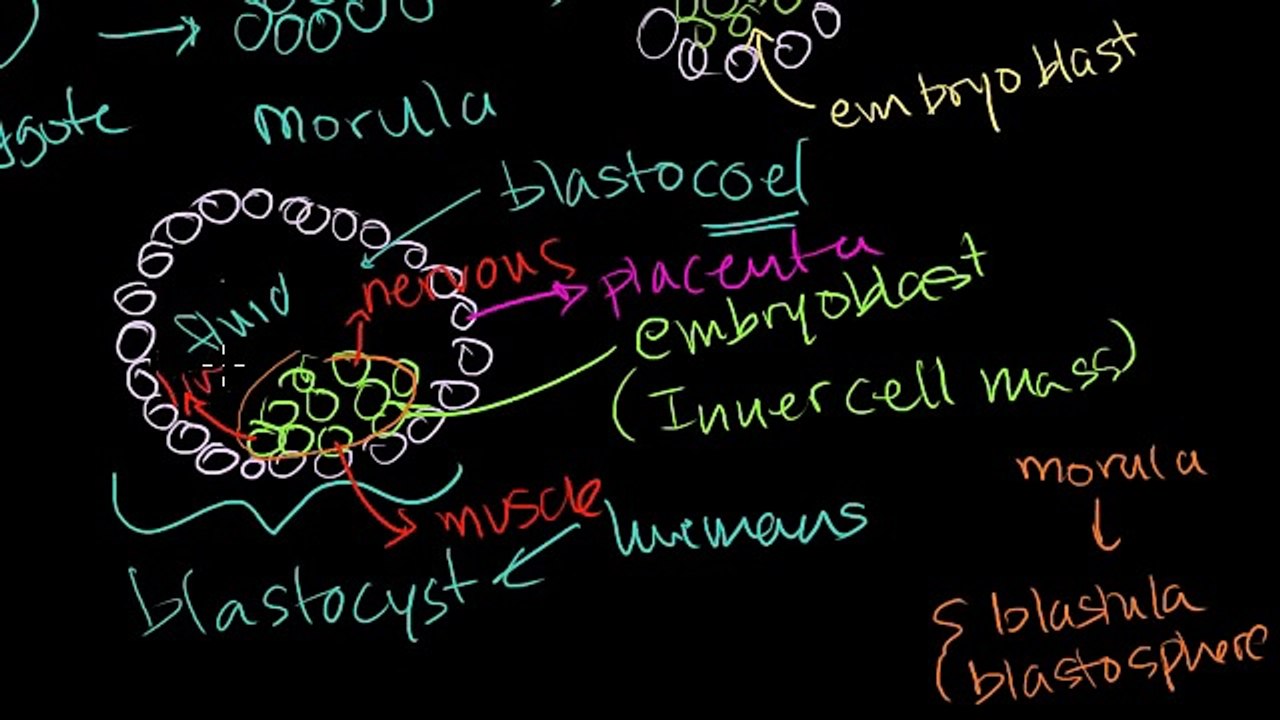 morula
embryoblast
blastocoel
nervous
placenta
fluid
embryoblast
(Inner cell mass)
muscle
humans
blastocyst
morula
blastula
blastosphere